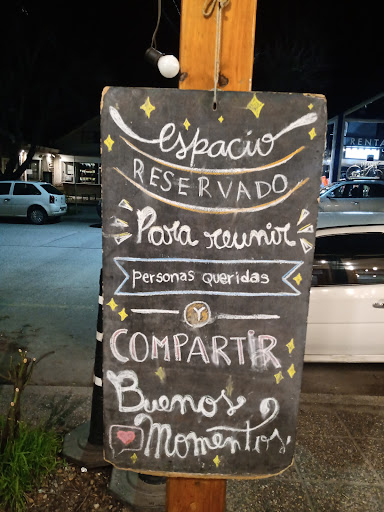 espacio
RESERVADO
Para reunir
personas queridas
Y
COMPARTIR
Buenos
Momentos
RENTA